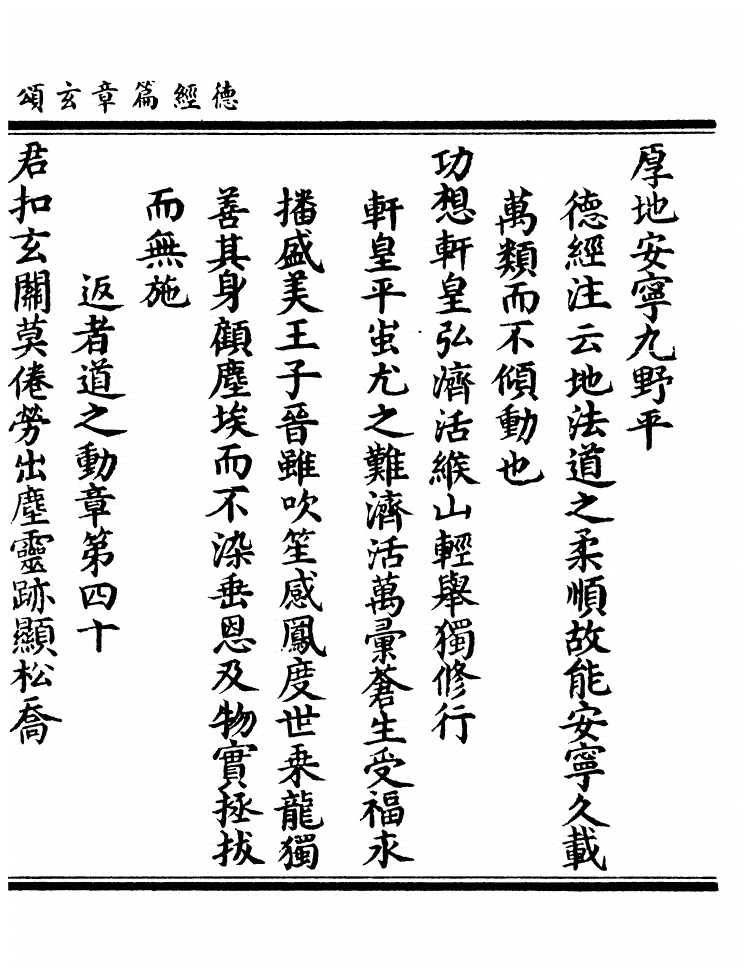 德經篇章玄頌
厚地安寧九野平
德經注云地法道之柔順故能安寧久載
萬類而不傾動也
功想軒皇弘濟活緱山輕舉獨修行
軒皇平蚩尤之難濟活萬彚蒼生受福永
播盛美王子晉雖吹笙感鳳度世乗龍獨
善其身顧塵埃而不染垂恩及物實拯拔
而無施
返者道之動章第四十
君扣玄關莫倦勞出塵靈跡顯松喬